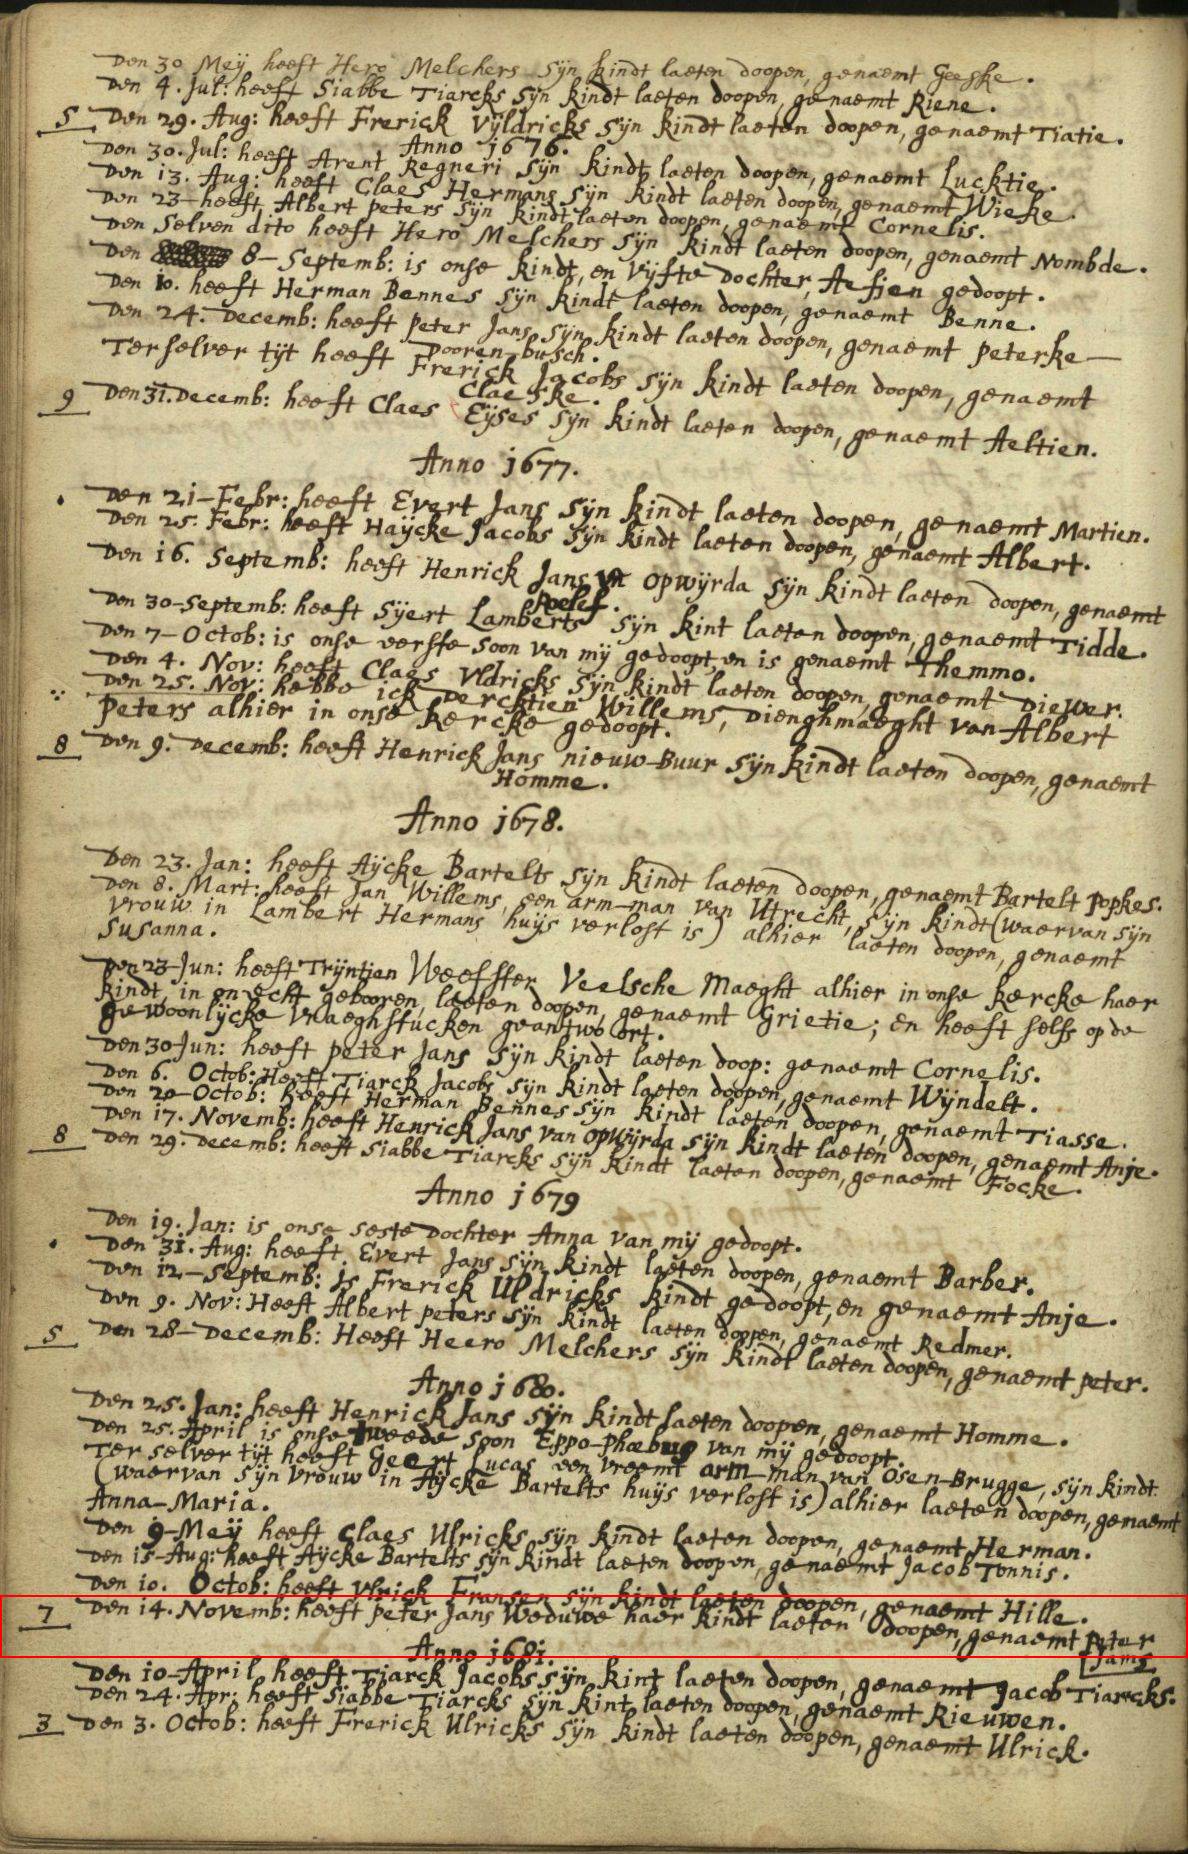 Den 30 Meÿ heeft Hero Melchers sÿn kindt laeten doopen, genaemt Geeske.
Den 4. Jul: heeft Siabbe Tiarcks sÿn kindt laeten doopen, genaemt Riene.
5 Den 29. Aug: heeft Frerick Vÿldricks sÿn kindt laeten doopen, genaemt Tiatie.
Anno 1676.
Den 30. Jul: heeft Arent Regneri sÿn kindt laeten doopen, genaemt Lucktie.
Den 13. Aug: heeft Claes Hermans sÿn kindt laeten doopen, genaemt Wieke.
Den 23- heeft Albert peters sÿn kindt laeten doopen, genaemt Cornelis.
Den selven dito heeft Hero Melchers sÿn kindt laeten doopen, genaemt Nombde.
Den 8- Septemb: is onse kindt, en vÿfte Dochter, Aefjen gedoopt.
Den 10. heeft Herman Bennes sÿn kindt laeten doopen, genaemt Benne.
Den 24. Decemb: heeft peter Jans sÿn kindt laeten doopen, genaemt peterke-
Dooren-busch.
Terselver tÿt heeft Frerick Jacobs sÿn kindt laeten doopen, genaemt
Claeske.
9 Den 31. Decemb: heeft Claes Eÿses sÿn kindt laeten doopen, genaemt Aeltien.
Anno 1677.
Den 21-Febr: heeft Evert Jans sÿn kindt laeten doopen, genaemt Martien.
Den 25. Febr: heeft Haÿcke Jacobs sÿn kindt laeten doopen, genaemt Albert.
Den 16. Septemb: heeft Henrick Jans in opwÿrda sÿn kindt laeten doopen, genaemt
Roelef.
Den 30-Septemb: heeft Sÿert Lamberts sÿn kint laeten doopen, genaemt Tidde.
Den 7-Octob: is onse eerste soon van mÿ gedoopt, en is genaemt Themmo.
Den 4. Nov: heeft Claes Vldricks sÿn kindt laeten doopen, genaemt Diewer.
Den 25. Nov: hebbe ick Dercktien Willems, Dienghmaeght van Albert
Peters alhier in onse kercke gedoopt.
8 Den 9. Decemb: heeft Henrick Jans nieuw-Buur sÿn kindt laeten doopen, genaemt
Homme.
Anno 1678.
Den 23. Jan: heeft Aÿcke Bartelts sÿn kindt laeten doopen, genaemt Bartelt Popkes.
Den 8. Mart: heeft Jan Willems, een arm-man van Utrecht, sÿn kindt (waervan sÿn
vrouw in Lambert Hermans huÿs verlost is) alhier laeten doopen, genaemt
Susanna.
Den 23-Jun: heeft Trÿntjen Veelsche Maeght alhier in onse kercke haer
kindt, in onecht gebooren, laeten doopen, genaemt Grietie; en heeft selfs op de
gewoonlÿcke vraeghstucken geantwoort.
Den 30-Jun: heeft peter Jans sÿn kindt laeten doop: genaemt Cornelis.
Den 6. Octob: Heeft Tiarck Jacobs sÿn kindt laeten doopen, genaemt Wÿndelt.
Den 20-Octob: heeft Herman Bennes sÿn kindt laeten doopen, genaemt Tiasse.
Den 17. Novemb: heeft Henrick Jans van opwÿrda sÿn kindt laeten doopen, genaemt Anje.
8 Den 29. Decemb: heeft Siabbe Tiarcks sÿn kindt laeten doopen, genaemt Focke.
Anno 1679
Den 19. Jan: is onse seste Dochter Anna van mÿ gedoopt.
Den 31. Aug: heeft Evert Jans sÿn kindt laeten doopen, genaemt Barber.
Den 12-Septemb: is Frerick Uldricks kindt gedoopt, en genaemt Anje.
Den 9. Nov: Heeft Albert peters sÿn kindt laeten doopen, genaemt Redmer.
5 Den 28-Decemb: Heeft Heero Melchers sÿn kindt laeten doopen, genaemt peter.
Anno 1680.
Den 25. Jan: heeft Henrick Jans sÿn kindt laeten doopen, genaemt Homme.
Den 25. April is onse tweede soon Eppo-phœbus van mÿ gedoopt.
Terselver tÿt heeft Geert Lucas een vreemt arm-man van Osen-Brugge, sÿn kindt
(waervan sÿn vrouw in Aÿcke Bartelts huÿs verlost is) alhier laeten doopen, genaemt
Anna-Maria.
Den 9-Meÿ heeft Claes Ulricks sÿn kindt laeten doopen, genaemt Herman.
Den 15-Aug: heeft Aÿcke Bartelts sÿn kindt laeten doopen, genaemt Jacob Tonnis.
Den 10. Octob: heeft Vlrick Fransen sÿn kindt laeten doopen, genaemt Hille.
7 Den 14. Novemb: heeft peter Jans Weduwe haer kindt laeten doopen, genaemt Peter
Jams
Anno 1681.
Den 10-April heeft Tiarck Jacobs sÿn kint laeten doopen, genaemt Jacob Tiarcks.
Den 24. Apr: heeft Siabbe Tiarcks sÿn kint laeten doopen, genaemt Rieuwen.
3 Den 3. Octob: heeft Frerick Ulricks sÿn kindt laeten doopen, genaemt Ulrick.